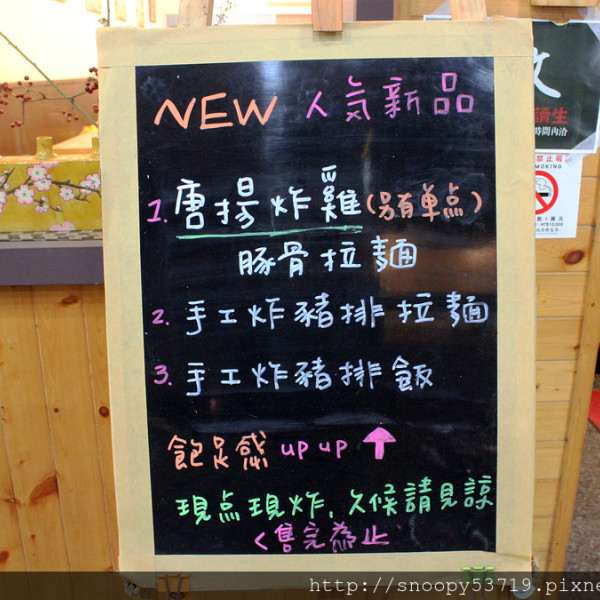 NEW 人気新品
1. 唐揚炸雞(另有單点)
豚骨拉麵
2. 手工炸豬排拉麵
3. 手工炸豬排飯
飽足感 up up ↑
現点現炸, 久候請見諒
<售完為止
請生
時間內洽
禁止吸
SMOKING
http://snoopy53719.pixne